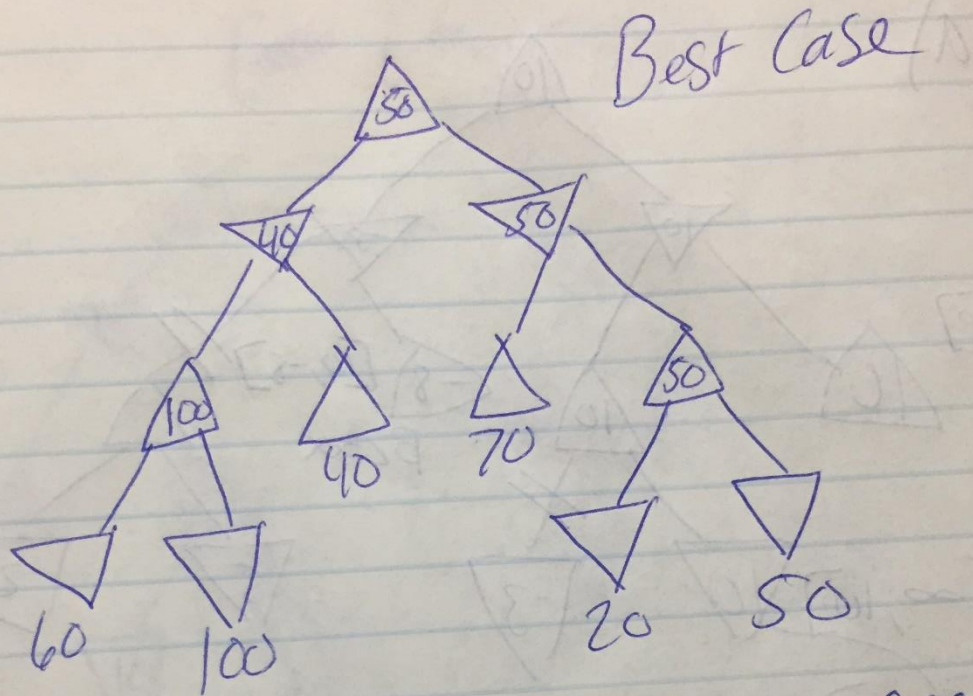 Best Case
50
40 50
100 40 70 50
60 100 20 50